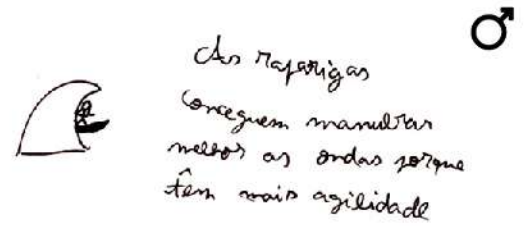 As raparigas
conceguem manubrar
melhor as ondas porque
têm mais agilidade